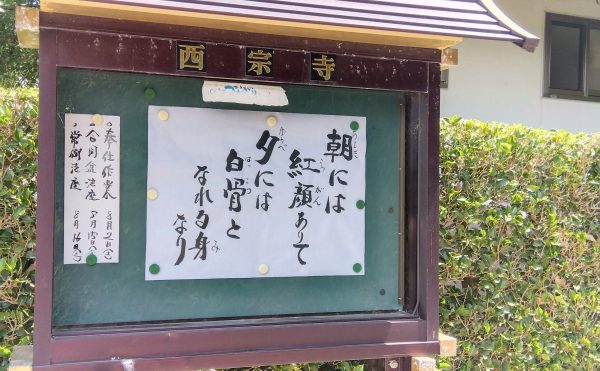 西宗寺
朝には
紅顔ありて
夕には
白骨と
なれる身
なり
・奉仕作業 8月2日(土)
・合同盆法座 8月15日
・常例法座 8月16日